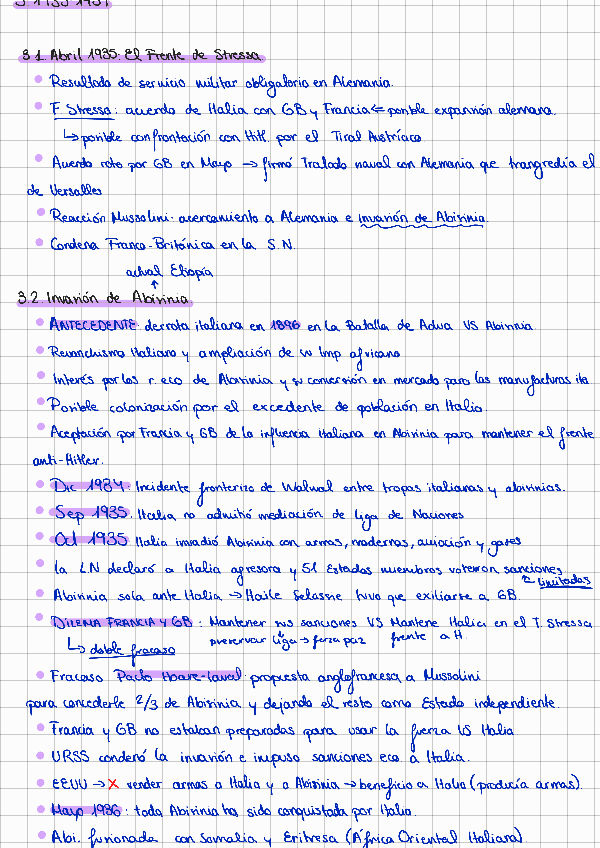 3.1. Abril 1935: El Frente de Stressa
Resultado de servicio militar obligatorio en Alemania.
F. Stressa: acuerdo de Italia con GB y Francia ⇐ posible expansión alemana.
↳ posible confrontación con Hitl. por el Tirol Austríaco
Acuerdo roto por GB en Mayo → firmó Tratado naval con Alemania que trangredía el
de Versalles
Reacción Mussolini: acercamiento a Alemania e invasión de Abisinia.
Condena Franco-Británica en la S.N.
actual Etiopía
↑
3.2 Invasión de Abisinia
ANTECEDENTE: derrota italiana en 1896 en la Batalla de Adua VS Abisinia.
Revanchismo Italiano y ampliación de su Imp africano
Interés por los r. eco de Abisinia y su conversión en mercado para las manufacturas ita.
Posible colonización por el excedente de población en Italia.
Aceptación por Francia y GB de la influencia italiana en Abisinia para mantener el frente
anti-Hitler.
Dic 1934: Incidente fronterizo de Walwal entre tropas italianas y abisinias.
Sep 1935. Italia no admitió mediación de Liga de Naciones
Oct 1935 Italia invadió Abisinia con armas, modernas, aviación y gases
la LN declaró a Italia agresora y 51 Estados miembros votaron sanciones
↖ limitadas
Abisinia sola ante Italia → Haile Selassie tuvo que exiliarse a GB.
DILEMA FRANCIA Y GB: Mantener sus sanciones VS Mantene Italia en el T. Stressa
↳ doble fracaso preservar liga → ferza paz frente a H.
Fracaso Pacto Hoare-Laval: propuesta anglofrancesa a Mussolini
para concederle 2/3 de Abisinia y dejando el resto como Estado independiente.
Francia y GB no estaban preparadas para usar la fuerza VS Italia
URSS condenó la invasión e impuso sanciones eco a Italia.
EEUU → X vender armas a Italia y a Abisinia → beneficio a Italia (producía armas).
Mayo 1936: toda Abisinia ha sido conquistada por Italia.
Abi. fusionada con Somalia y Eritresa (África Oriental Italiana)